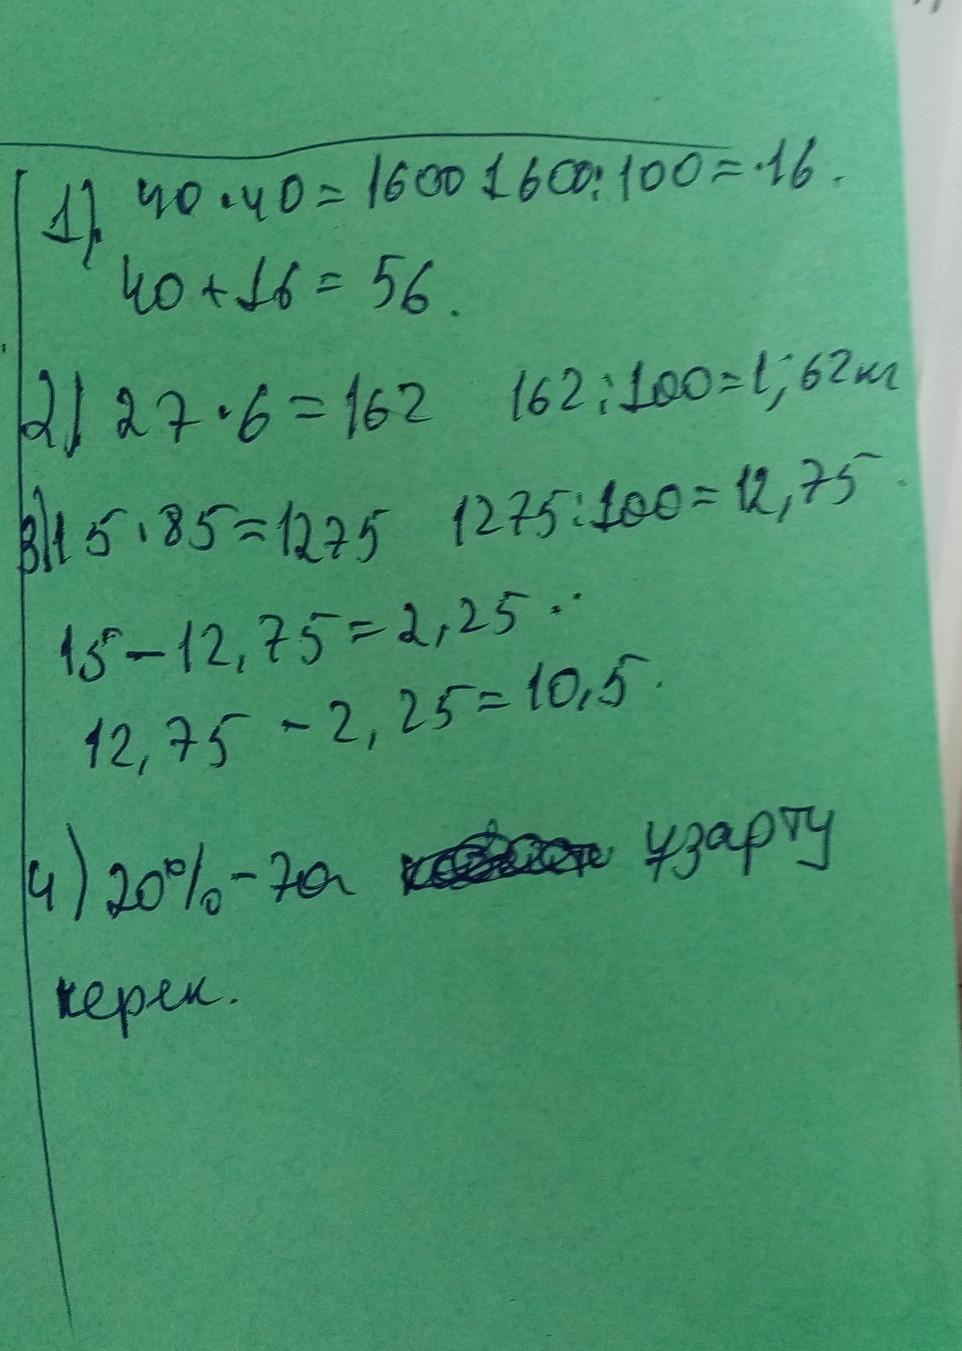 1). 40·40=1600 1600:100=16.
40+16=56.
2) 27·6=162 162:100=1,62кг
3) 15·85=1275 1275:100=12,75
15-12,75=2,25.
12,75-2,25=10,5.
4) 20%-ға ұзарту
керек.